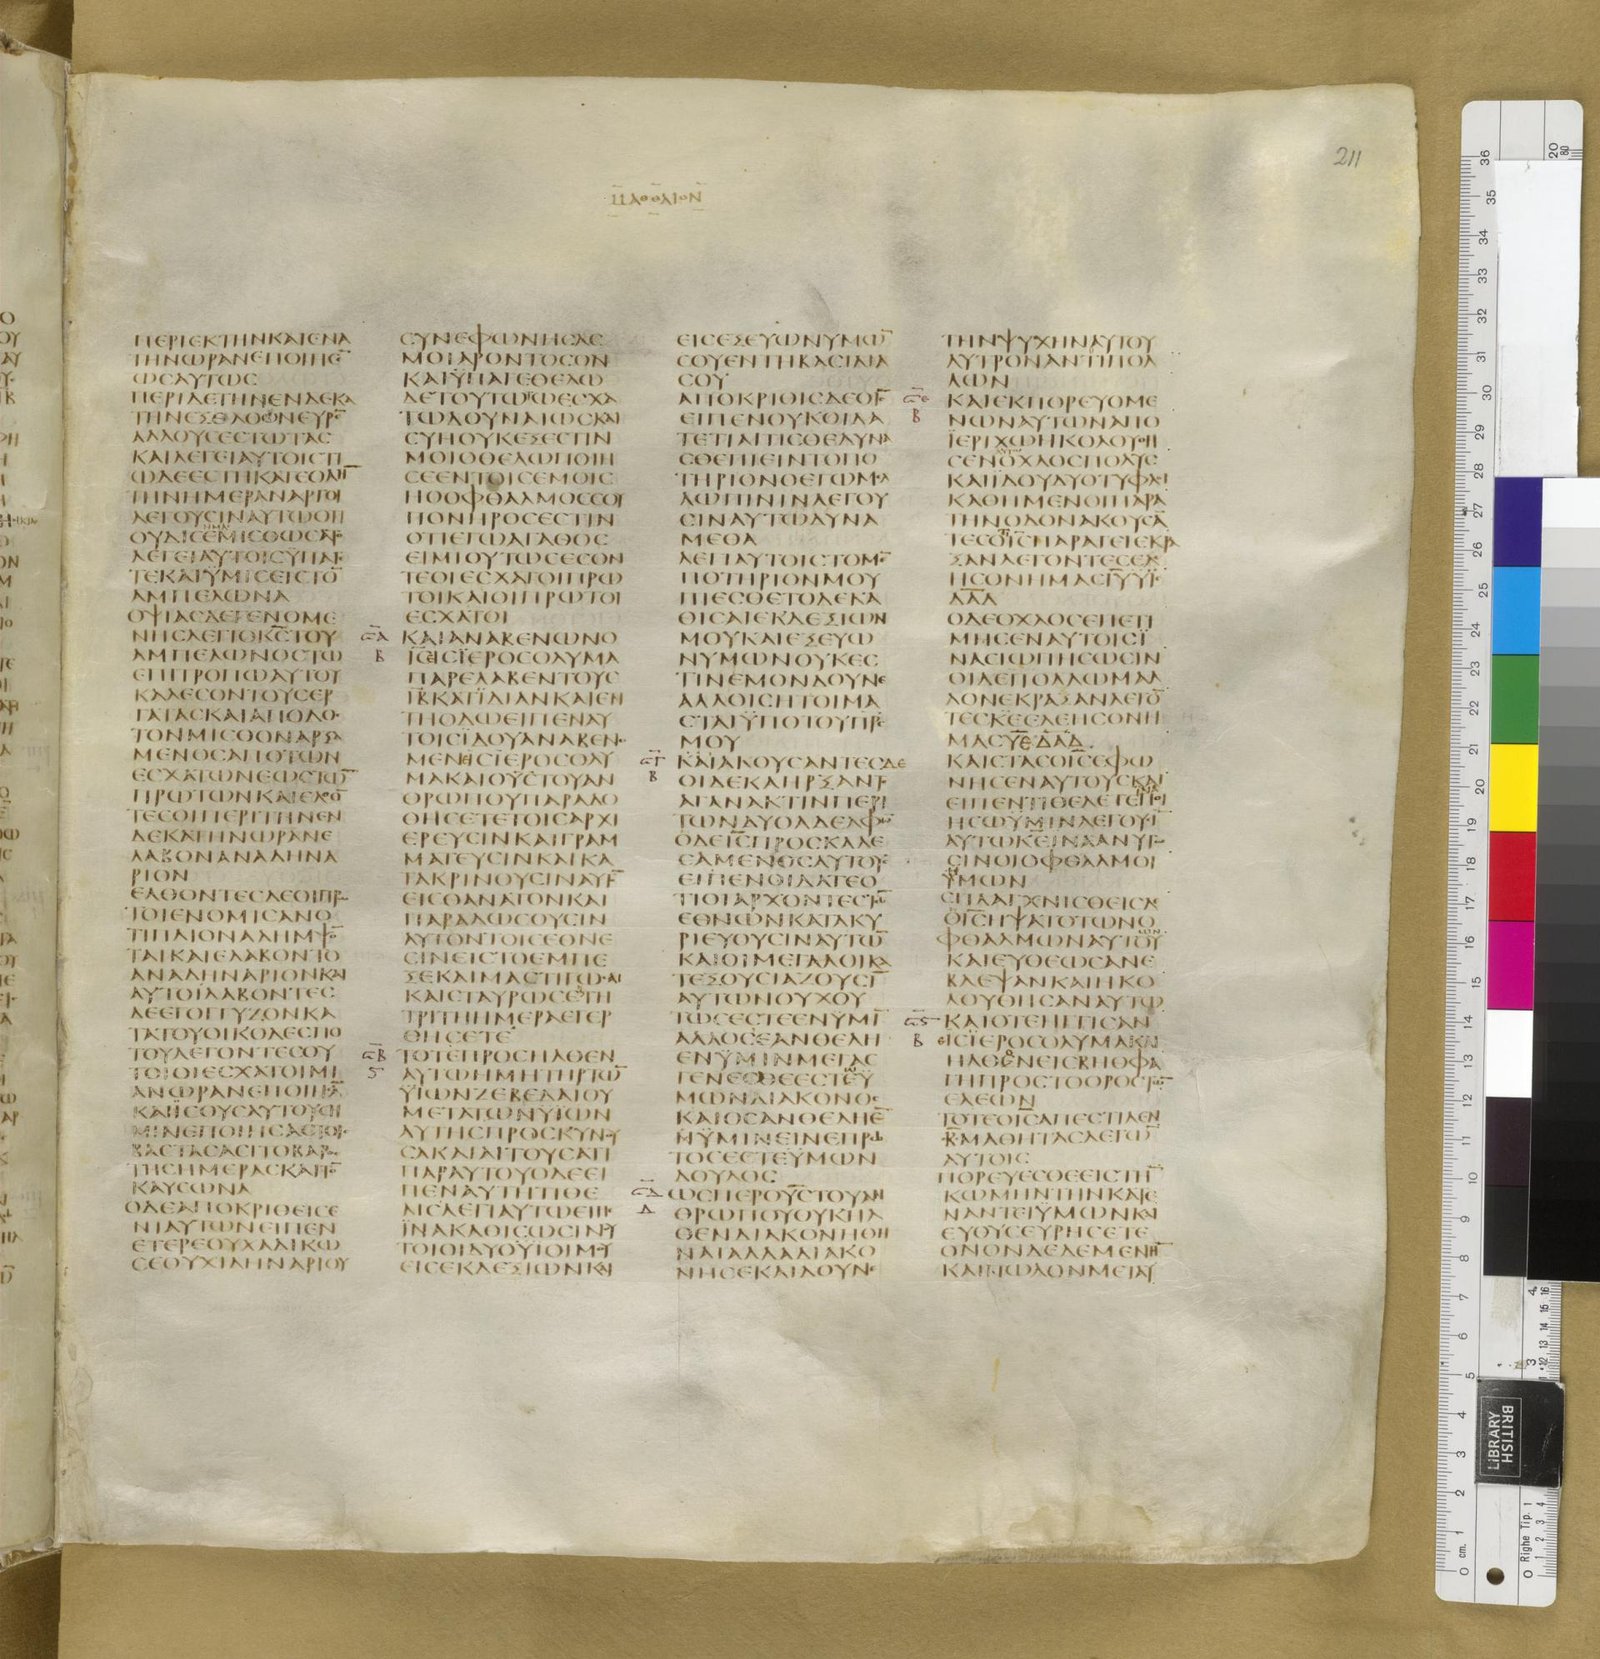 211
ΜΑΘΘΑΙΟΝ
ΠΕΡΙΕΚΤΗΝΚΑΙΕΝΑ
ΤΗΝΩΡΑΝΕΠΟΙΗΣΕ̅
ΩϹΑΥΤΩϹ
ΠΕΡΙΔΕΤΗΝΕΝΔΕΚΑ
ΤΗΝΕΞΕΛΘΩΝΕΥΡΕ̅
ΑΛΛΟΥϹΕϹΤΩΤΑϹ
ΚΑΙΛΕΓΕΙΑΥΤΟΙϹΤΙ
ΩΔΕΕϹΤΗΚΑΤΕΟΛΗ̅
ΤΗΝΗΜΕΡΑΝΑΡΓΟΙ
ΛΕΓΟΥϹΙΝΑΥΤΩΟΤΙ
ΟΥΔΙϹΗΜΑϹΕΜΙϹΘΩϹΑΤΟ
ΛΕΓΕΙΑΥΤΟΙϹΥΠΑΓΕ
ΤΕΚΑΙΫΜΙϹΕΙϹΤΟ̅
ΑΜΠΕΛΩΝΑ
ΟΨΙΑϹΔΕΓΕΝΟΜΕ
ΝΗϹΛΕΓΙΟΚ̅Ϲ̅ΤΟΥ
ΑΜΠΕΛΩΝΟϹΤΩ
ΕΠΙΤΡΟΠΩΑΥΤΟΥ
ΚΑΛΕϹΟΝΤΟΥϹΕΡ
ΓΑΤΑϹΚΑΙΑΠΟΔΟϹ
ΤΟΝΜΙϹΘΟΝΑΡΞΑ
ΜΕΝΟϹΑΠΟΤΩΝ
ΕϹΧΑΤΩΝΕΩϹΤΩ̅
ΠΡΩΤΩΝΚΑΙΕΛΘΟ̅
ΤΕϹΟΙΠΕΡΙΤΗΝΕΝ
ΔΕΚΑΤΗΝΩΡΑΝΕ
ΛΑΒΟΝΑΝΑΔΗΝΑ
ΡΙΟΝ
ΕΛΘΟΝΤΕϹΔΕΟΙΠΡΩ
ΤΟΙΕΝΟΜΙϹΑΝΟ
ΤΙΠΛΙΟΝΑΛΗΜΨΟ̅
ΤΑΙΚΑΙΕΛΑΒΟΝΤΟ
ΑΝΑΔΗΝΑΡΙΟΝΚΑΙ
ΑΥΤΟΙΛΑΒΟΝΤΕϹ
ΔΕΕΓΟΓΓΥΖΟΝΚΑ
ΤΑΤΟΥΟΙΚΟΔΕϹΠΟ
ΤΟΥΛΕΓΟΝΤΕϹΟΥ
ΤΟΙΟΙΕϹΧΑΤΟΙΜΙ
ΑΝΩΡΑΝΕΠΟΙΗϹΑ̅
ΚΑΙΪϹΟΥϹΑΥΤΟΥϹΗ
ΜΙΝΕΠΟΙΗϹΑϹΤΟΙϹ
ΒΑϹΤΑϹΑϹΙΤΟΒΑΡΟϹ
ΤΗϹΗΜΕΡΑϹΚΑΙΤΟ̅
ΚΑΥϹΩΝΑ
ΟΔΕΑΠΟΚΡΙΘΕΙϹΕ
ΝΙΑΥΤΩΝΕΙΠΕΝ
ΕΤΕΡΕΟΥΚΑΔΙΚΩ
ϹΕΟΥΧΙΔΗΝΑΡΙΟΥ
ϹΥΝΕΦΩΝΗϹΑϹ
ΜΟΙΑΡΟΝΤΟϹΟΝ
ΚΑΙΫΠΑΓΕΘΕΛΩ
ΔΕΤΟΥΤΩΤΩΕϹΧΑ
ΤΩΔΟΥΝΑΙΩϹΚΑΙ
ϹΥΗΟΥΚΕΞΕϹΤΙΝ
ΜΟΙΟΘΕΛΩΠΟΙΗ
ϹΕΕΝΤΟΙϹΕΜΟΙϹ
ΗΟΟΦΘΑΛΜΟϹϹΟΥ
ΠΟΝΗΡΟϹΕϹΤΙΝ
ΟΤΙΕΓΩΑΓΑΘΟϹ
ΕΙΜΙΟΥΤΩϹΕϹΟΝ
ΤΕΟΙΕϹΧΑΤΟΙΠΡΩ
ΤΟΙΚΑΙΟΙΠΡΩΤΟΙ
ΕϹΧΑΤΟΙ
Ϲ̅Α̅ ΚΑΙΑΝΑΒΕΝΩΝΟ
Β Ι̅Ϲ̅ΕΙϹΪΕΡΟϹΟΛΥΜΑ
ΠΑΡΕΛΑΒΕΝΤΟΥϹ
Ι̅Β̅ΚΑΤΪΔΙΑΝΚΑΙΕΝ
ΤΗΟΔΩΕΙΠΕΝΑΥ
ΤΟΙϹΪΔΟΥΑΝΑΒΕΝΟ
ΜΕΝΕΙϹΪΕΡΟϹΟΛΥ
ΜΑΚΑΙΟΥ̅Ϲ̅ΤΟΥΑΝ
ΘΡΩΠΟΥΠΑΡΑΔΟ
ΘΗϹΕΤΕΤΟΙϹΑΡΧΙ
ΕΡΕΥϹΙΝΚΑΙΓΡΑΜ
ΜΑΤΕΥϹΙΝΚΑΙΚΑ
ΤΑΚΡΙΝΟΥϹΙΝΑΥΤΟ̅
ΕΙϹΘΑΝΑΤΟΝΚΑΙ
ΠΑΡΑΔΩϹΟΥϹΙΝ
ΑΥΤΟΝΤΟΙϹΕΘΝΕ
ϹΙΝΕΙϹΤΟΕΜΠΕ
ΞΕΚΑΙΜΑϹΤΙΓΩϹΑΙ
ΚΑΙϹΤΑΥΡΩϹΕΤΗ
ΤΡΙΤΗΗΜΕΡΑΕΓΕΡ
ΘΗϹΕΤΕ
Ϲ̅Β̅ ΤΟΤΕΠΡΟϹΗΛΘΕΝ
Ϛ ΑΥΤΩΗΜΗΤΗΡΤΩ̅
ΫΙΩΝΖΕΒΕΔΑΙΟΥ
ΜΕΤΑΤΩΝΥΙΩΝ
ΑΥΤΗϹΠΡΟϹΚΥΝΟΥ
ϹΑΚΑΙΑΙΤΟΥϹΑΤΙ
ΠΑΡΑΥΤΟΥΟΔΕΕΙ
ΠΕΝΑΥΤΗΤΙΘΕ
ΛΙϹΛΕΓΙΑΥΤΩΕΙΠΕ
ΪΝΑΚΑΘΙϹΩϹΙΝΟΥ
ΤΟΙΟΙΔΥΟΫΙΟΙΜΟΥ
ΕΙϹΕΚΔΕΞΙΩΝΚΑΙ
ΕΙϹΕΞΕΥΩΝΥΜΩ̅
ϹΟΥΕΝΤΗΒΑϹΙΛΙΑ
ϹΟΥ
ΑΠΟΚΡΙΘΙϹΔΕΟΙ̅Ϲ̅
ΕΙΠΕΝΟΥΚΟΙΔΑ
ΤΕΤΙΑΙΤΙϹΘΕΔΥΝΑ
ϹΘΕΠΙΕΙΝΤΟΠΟ
ΤΗΡΙΟΝΟΕΓΩΜΕΛ
ΛΩΠΙΝΙΝΛΕΓΟΥ
ϹΙΝΑΥΤΩΔΥΝΑ
ΜΕΘΑ
ΛΕΓΙΑΥΤΟΙϹΤΟΜΕ̅
ΠΟΤΗΡΙΟΝΜΟΥ
ΠΙΕϹΘΕΤΟΔΕΚΑ
ΘΙϹΑΙΕΚΔΕΞΙΩΝ
ΜΟΥΚΑΙΕΞΕΥΩ
ΝΥΜΩΝΟΥΚΕϹ
ΤΙΝΕΜΟΝΔΟΥΝΑΙ
ΑΛΛΟΙϹΗΤΟΙΜΑ
ϹΤΑΙΫΠΟΤΟΥΠ̅Ρ̅Ϲ̅
ΜΟΥ
Ϲ̅Γ̅ ΚΑΙΑΚΟΥϹΑΝΤΕϹΔΕ
Β ΟΙΔΕΚΑΗΡΞΑΝΤΟ
ΑΓΑΝΑΚΤΙΝΠΕΡΙ
ΤΩΝΔΥΟΑΔΕΛΦΩ̅
ΟΔΕΙ̅Ϲ̅ΠΡΟϹΚΑΛΕ
ϹΑΜΕΝΟϹΑΥΤΟΥϹ
ΕΙΠΕΝΟΙΔΑΤΕΟ
ΤΙΟΙΑΡΧΟΝΤΕϹΤΩ̅
ΕΘΝΩΝΚΑΤΑΚΥ
ΡΙΕΥΟΥϹΙΝΑΥΤΩ̅
ΚΑΙΟΙΜΕΓΑΛΟΙΚΑ
ΤΕΞΟΥϹΙΑΖΟΥϹΙ̅
ΑΥΤΩΝΟΥΧΟΥ
ΤΩϹΕϹΤΕΕΝΥΜΙ̅
ΑΛΛΟϹΕΑΝΘΕΛΗ
ΕΝΫΜΙΝΜΕΓΑϹ
ΓΕΝΕϹΘΕΕϹΤΕΫ
ΜΩΝΔΙΑΚΟΝΟϹ
ΚΑΙΟϹΑΝΘΕΛΗΕ̅
ΫΜΙΝΕΙΝΕΠΡΩ
ΤΟϹΕϹΤΕΫΜΩΝ
ΔΟΥΛΟϹ
Ϲ̅Δ̅ ΩϹΠΕΡΟΥ̅Ϲ̅ΤΟΥΑΝ
Δ ΘΡΩΠΟΥΟΥΚΗΛ
ΘΕΝΔΙΑΚΟΝΗΘΗ
ΝΑΙΑΛΛΑΔΙΑΚΟ
ΝΗϹΕΚΑΙΔΟΥΝΑΙ
ΤΗΝΨΥΧΗΝΑΥΤΟΥ
ΛΥΤΡΟΝΑΝΤΙΠΟΛ
ΛΩΝ
Ϲ̅Ε̅ ΚΑΙΕΚΠΟΡΕΥΟΜΕ
Β ΝΩΝΑΥΤΩΝΑΠΟ
ΪΕΡΙΧΩΗΚΟΛΟΥΘΗ
ϹΕΝΟΧΛΟϹΠΟΛΥϹ
ΚΑΙΪΔΟΥΔΥΟΤΥΦΛΟΙ
ΚΑΘΗΜΕΝΟΙΠΑΡΑ
ΤΗΝΟΔΟΝΑΚΟΥϹΑ̅
ΤΕϹΟΤΙΙ̅Ϲ̅ΠΑΡΑΓΕΙΕΚΡΑ
ΞΑΝΛΕΓΟΝΤΕϹΕΛΕ
ΗϹΟΝΗΜΑϹΙ̅Υ̅Υ̅Ϊ̅Ε
Δ̅Α̅Δ̅
ΟΔΕΟΧΛΟϹΕΠΕΤΙ
ΜΗϹΕΝΑΥΤΟΙϹΪ
ΝΑϹΙΩΠΗϹΩϹΙΝ
ΟΙΔΕΠΟΛΛΩΜΑΛ
ΛΟΝΕΚΡΑΞΑΝΛΕΓΟ̅
ΤΕϹΚ̅Ε̅ΕΛΕΗϹΟΝΗ
ΜΑϹΥ̅Ε̅Δ̅Α̅Δ̅
ΚΑΙϹΤΑϹΟΙ̅Ϲ̅ΕΦΩ
ΝΗϹΕΝΑΥΤΟΥϹΚΑΙ
ΕΙΠΕΝΤΙΘΕΛΕΤΕΠΟΙ
ΗϹΩΫΜΙΝΛΕΓΟΥϹΙ̅
ΑΥΤΩΚ̅Ε̅ΙΝΑΑΝΥΓΩ
ϹΙΝΟΙΟΦΘΑΛΜΟΙ
ΫΜΩΝ
ϹΠΛΑΓΧΝΙϹΘΕΙϹΔΕ
ΟΙ̅Ϲ̅ΗΨΑΤΟΤΩΝΟ
ΦΘΑΛΜΩΝΑΥΤΟΥ
ΚΑΙΕΥΘΕΩϹΑΝΕ
ΒΛΕΨΑΝΚΑΙΗΚΟ
ΛΟΥΘΗϹΑΝΑΥΤΩ
Ϲ̅Ϛ̅ ΚΑΙΟΤΕΗΓΓΙϹΑΝ
Β ΕΙϹΪΕΡΟϹΟΛΥΜΑΚΑΙ
ΗΛΘΟΝΕΙϹΒΗΘΦΑ
ΓΗΠΡΟϹΤΟΟΡΟϹΤΩ̅
ΕΛΕΩΝ
ΤΟΤΕΟΙ̅Ϲ̅ΑΠΕϹΤΙΛΕΝ
Β̅ΜΑΘΗΤΑϹΛΕΓΩ̅
ΑΥΤΟΙϹ
ΠΟΡΕΥΕϹΘΕΕΙϹΤΗ̅
ΚΩΜΗΝΤΗΝΚΑΤΕ
ΝΑΝΤΕΙΥΜΩΝΚΑΙ
ΕΥΘΥϹΕΥΡΗϹΕΤΕ
ΟΝΟΝΔΕΔΕΜΕΝΗ̅
ΚΑΙΠΩΛΟΝΜΕΤΑΥ
BRITISH
LIBRARY
Righe Tip.
cm.